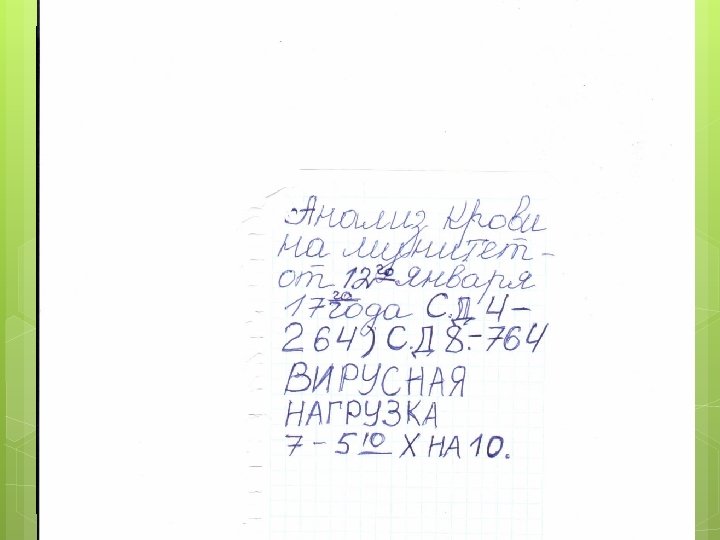 Анализ крови
на мунитет -
от 12го января
17го года С.Д 4 -
264) С.Д 8.-764
ВИРУСНАЯ
НАГРУЗКА
7 - 5 10 Х НА 10.